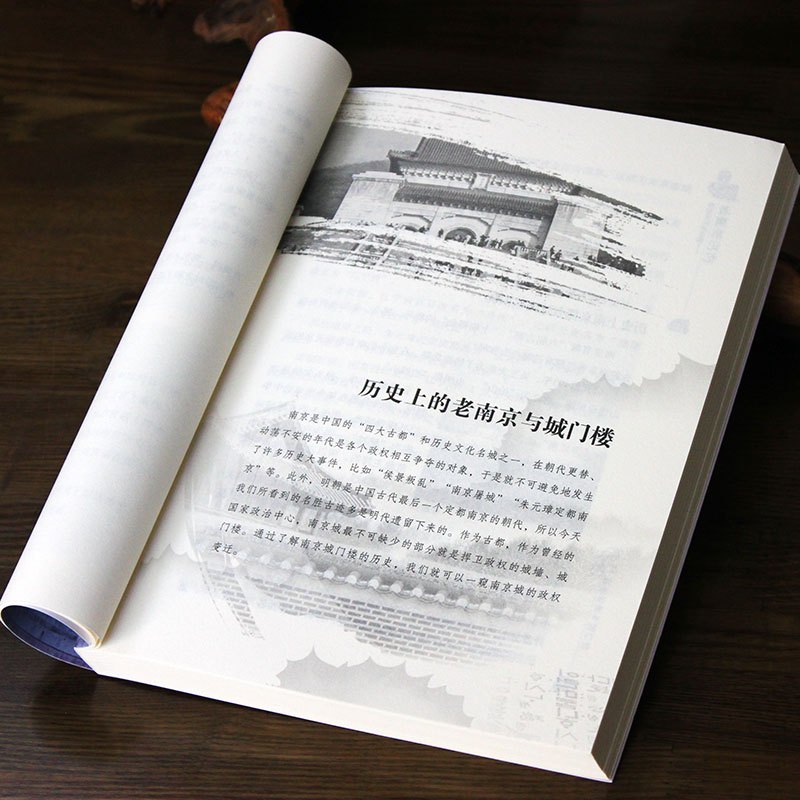 历史上的老南京与城门楼
南京是中国的“四大古都”和历史文化名城之一，在朝代更替、
动荡不安的年代是各个政权相互争夺的对象，于是就不可避免地发生
了许多历史大事件，比如“侯景叛乱”“南京屠城”“朱元璋定都南
京”等。此外，明朝是中国古代最后一个定都南京的朝代，所以今天
我们所看到的名胜古迹多是明代遗留下来的。作为古都，作为曾经的
国家政治中心，南京城最不可缺少的部分就是捍卫政权的城墙、城
门楼。通过了解南京城门楼的历史，我们就可以一窥南京城的政权
变迁。